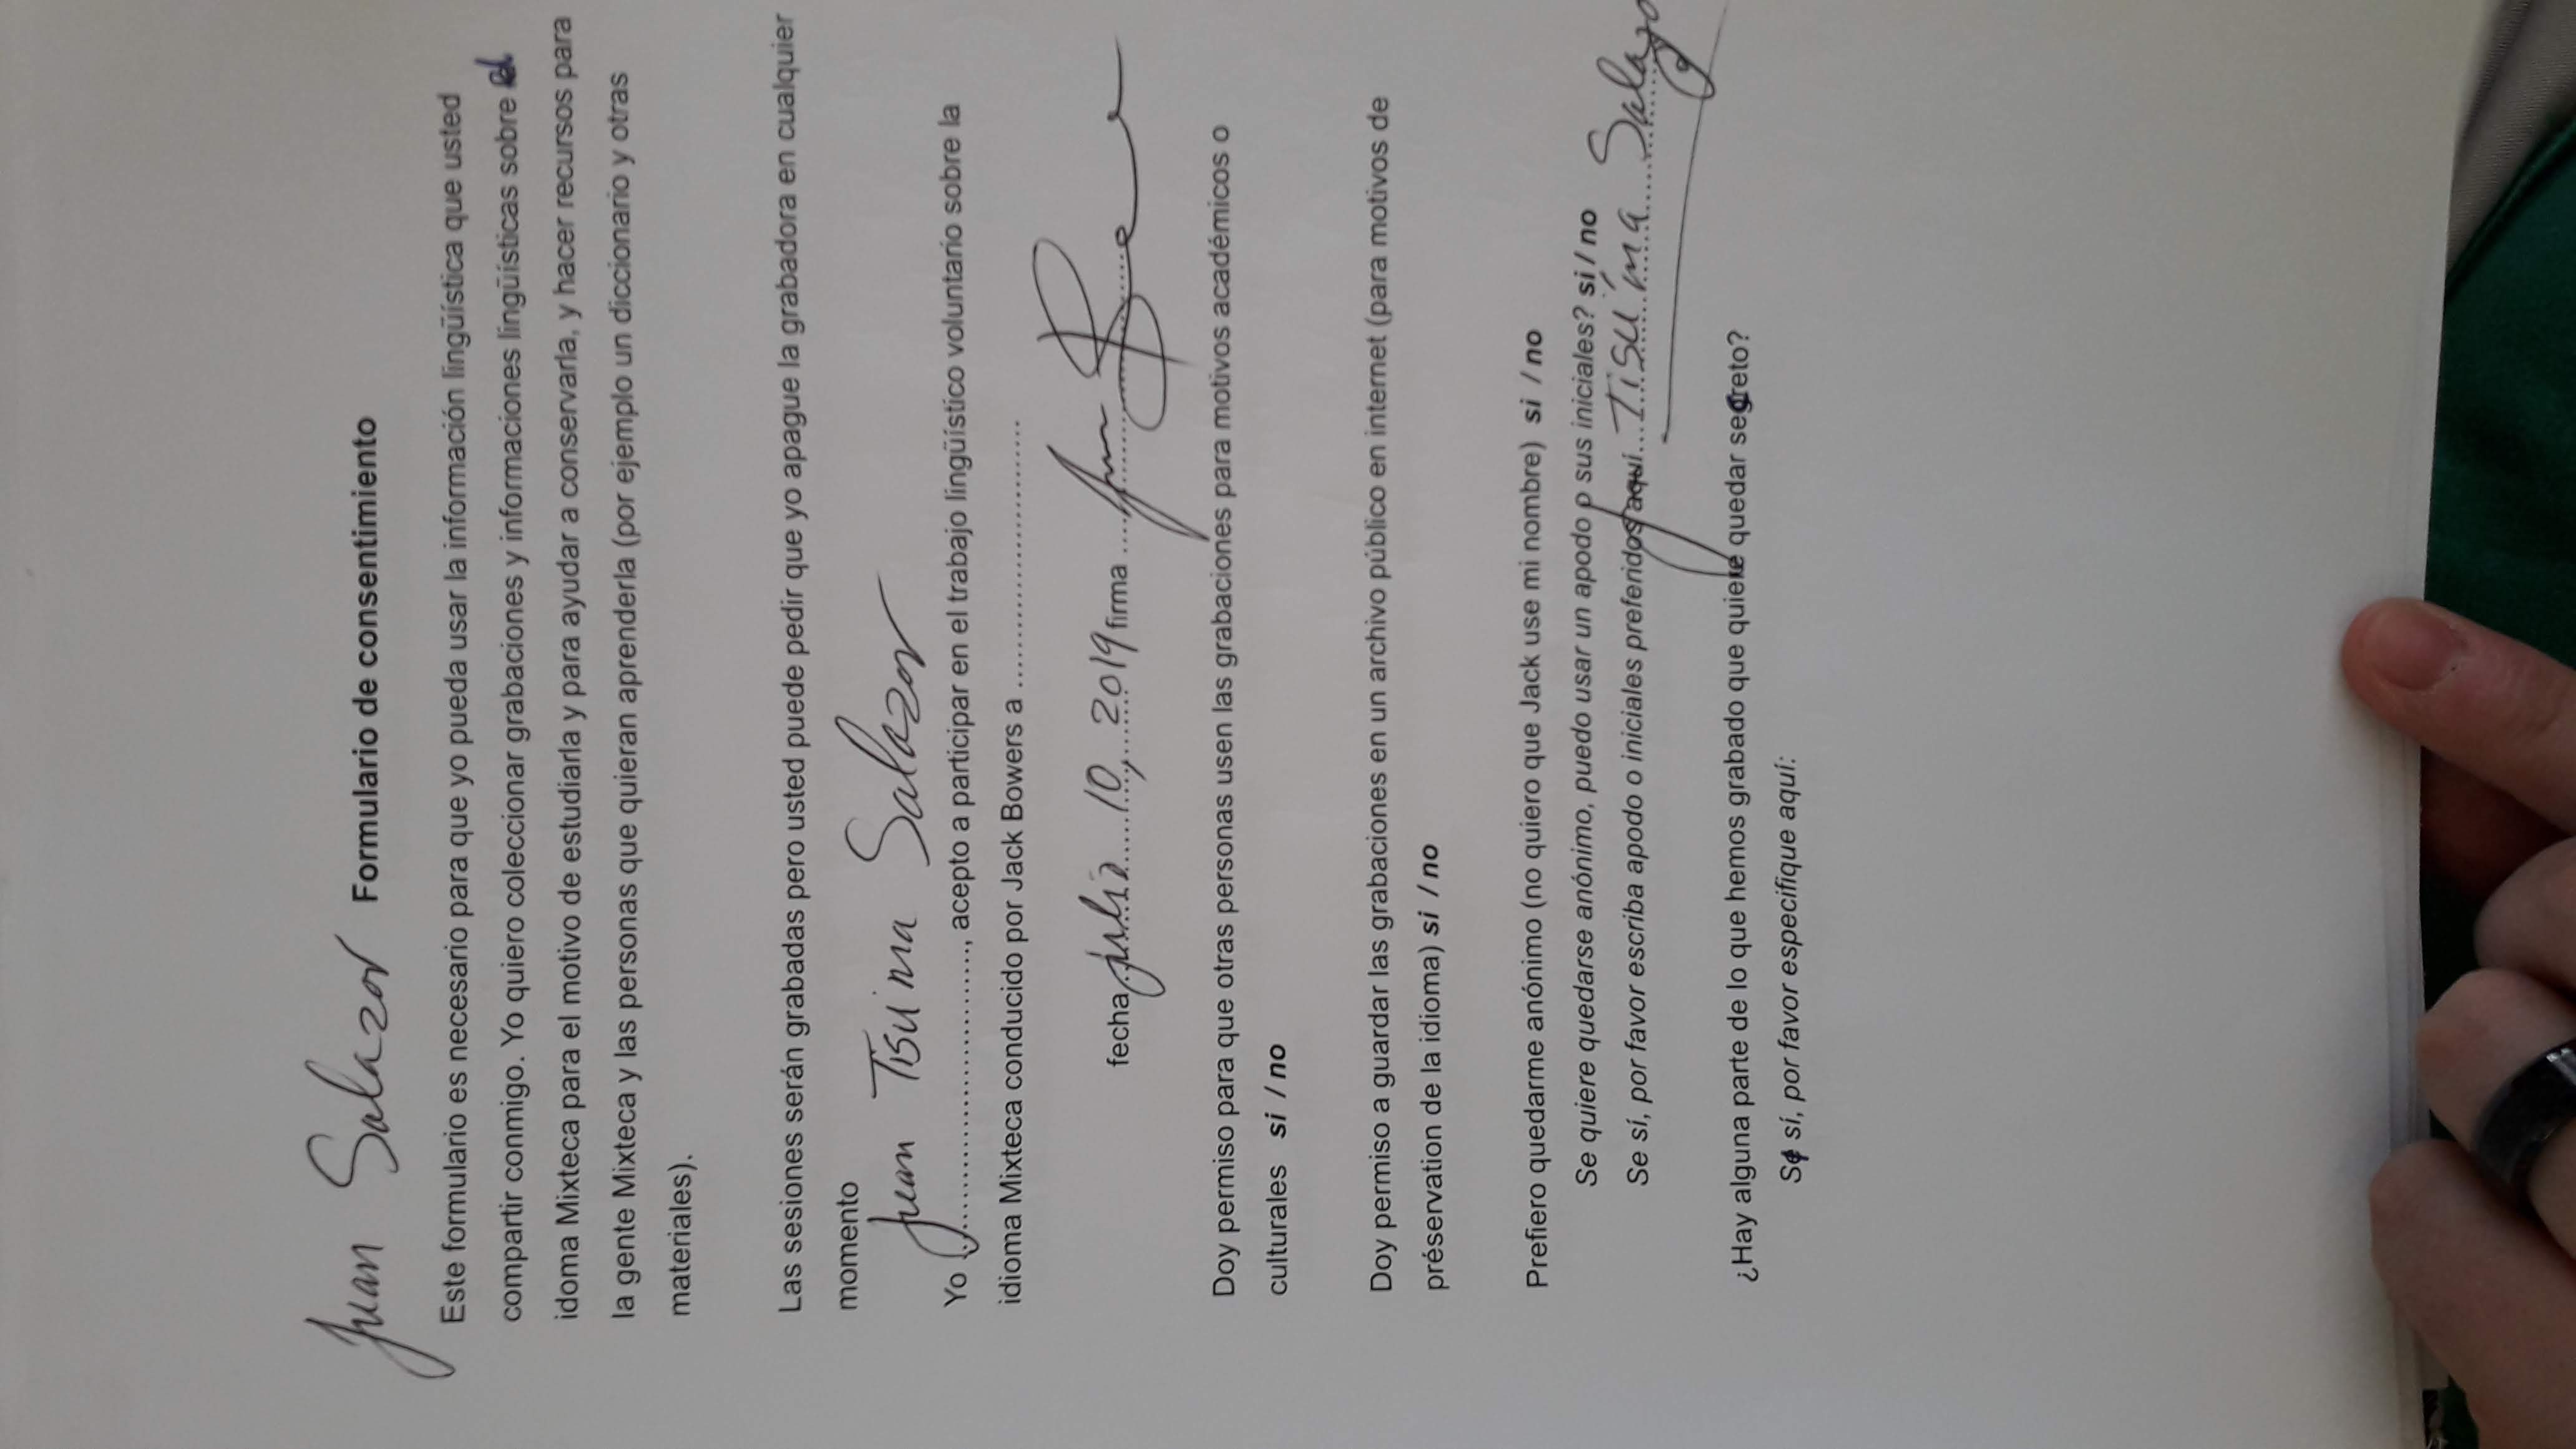 Juan Salazar Formulario de consentimiento
Este formulario es necesario para que yo pueda usar la información lingüística que usted
compartir conmigo. Yo quiero coleccionar grabaciones y informaciones lingüísticas sobre el
idoma Mixteca para el motivo de estudiarla y para ayudar a conservarla, y hacer recursos para
la gente Mixteca y las personas que quieran aprenderla (por ejemplo un diccionario y otras
materiales).
Las sesiones serán grabadas pero usted puede pedir que yo apague la grabadora en cualquier
momento
Yo Juan Tisuima Salazar, acepto a participar en el trabajo lingüístico voluntario sobre la
idioma Mixteca conducido por Jack Bowers a ..............................
fecha Julio 10, 2019 firma
Doy permiso para que otras personas usen las grabaciones para motivos académicos o
culturales si / no
Doy permiso a guardar las grabaciones en un archivo público en internet (para motivos de
préservation de la idioma) si / no
Prefiero quedarme anónimo (no quiero que Jack use mi nombre) si / no
Se quiere quedarse anónimo, puedo usar un apodo o sus iniciales? si / no
Se sí, por favor escriba apodo o iniciales preferidos aquí... Tisuíma Salazar
¿Hay alguna parte de lo que hemos grabado que quiere quedar segreto?
Si sí, por favor especifique aquí: